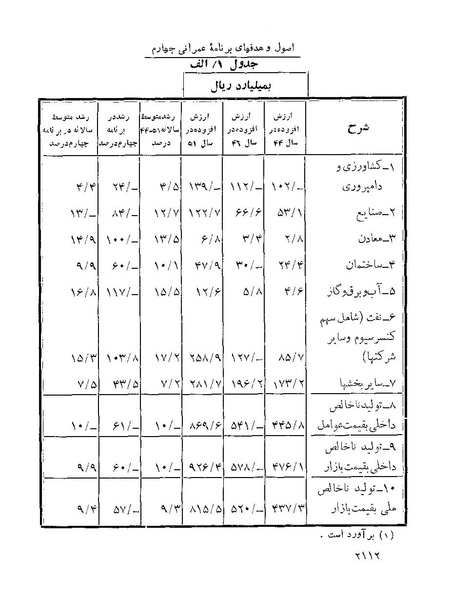 اصول و هدفهای برنامهٔ عمرانی چهارم
جدول ۱/ الف
بمیلیارد ریال
شرح | ارزش افزوده در سال ۴۴ | ارزش افزوده در سال ۴۶ | ارزش افزوده در سال ۵۱ | رشد متوسط سالانه ۵۱-۴۴ درصد | رشد در برنامه چهارم درصد | رشد متوسط سالانه در برنامه چهارم درصد
۱ـ کشاورزی و
دامپروری | ۱۰۲/ـ | ۱۱۲/ـ | ۱۳۹/ـ | ۴/۵ | ۲۴/ـ | ۴/۴
۲ـ صنایع | ۵۳/۱ | ۶۶/۶ | ۱۲۲/۷ | ۱۲/۷ | ۸۴/ـ | ۱۳/ـ
۳ـ معادن | ۲/۸ | ۳/۴ | ۶/۸ | ۱۳/۵ | ۱۰۰/ـ | ۱۴/۹
۴ـ ساختمان | ۲۴/۴ | ۳۰/ـ | ۴۷/۹ | ۱۰/۱ | ۶۰/ـ | ۹/۹
۵ـ آب و برق و گاز | ۴/۶ | ۵/۸ | ۱۲/۶ | ۱۵/۵ | ۱۱۷/ـ | ۱۶/۸
۶ـ نفت (شامل سهم
کنسرسیوم و سایر
شرکتها) | ۸۵/۷ | ۱۲۷/ـ | ۲۵۸/۹ | ۱۷/۲ | ۱۰۳/۸ | ۱۵/۳
۷ـ سایر بخشها | ۱۷۳/۲ | ۱۹۶/۲ | ۲۸۱/۷ | ۷/۲ | ۴۳/۵ | ۷/۵
۸ـ تولید ناخالص
داخلی بقیمت عوامل | ۴۴۵/۸ | ۵۴۱/ـ | ۸۶۹/۶ | ۱۰/ـ | ۶۱/ـ | ۱۰/ـ
۹ـ تولید ناخالص
داخلی بقیمت بازار | ۴۷۶/۱ | ۵۷۸/ـ | ۹۲۶/۴ | ۱۰/ـ | ۶۰/ـ | ۹/۹
۱۰ـ تولید ناخالص
ملی بقیمت بازار | ۴۳۷/۳ | ۵۲۰/ـ | ۸۱۵/۵ | ۹/۳ | ۵۷/ـ | ۹/۴
(۱) برآورد است .
۲۱۱۲